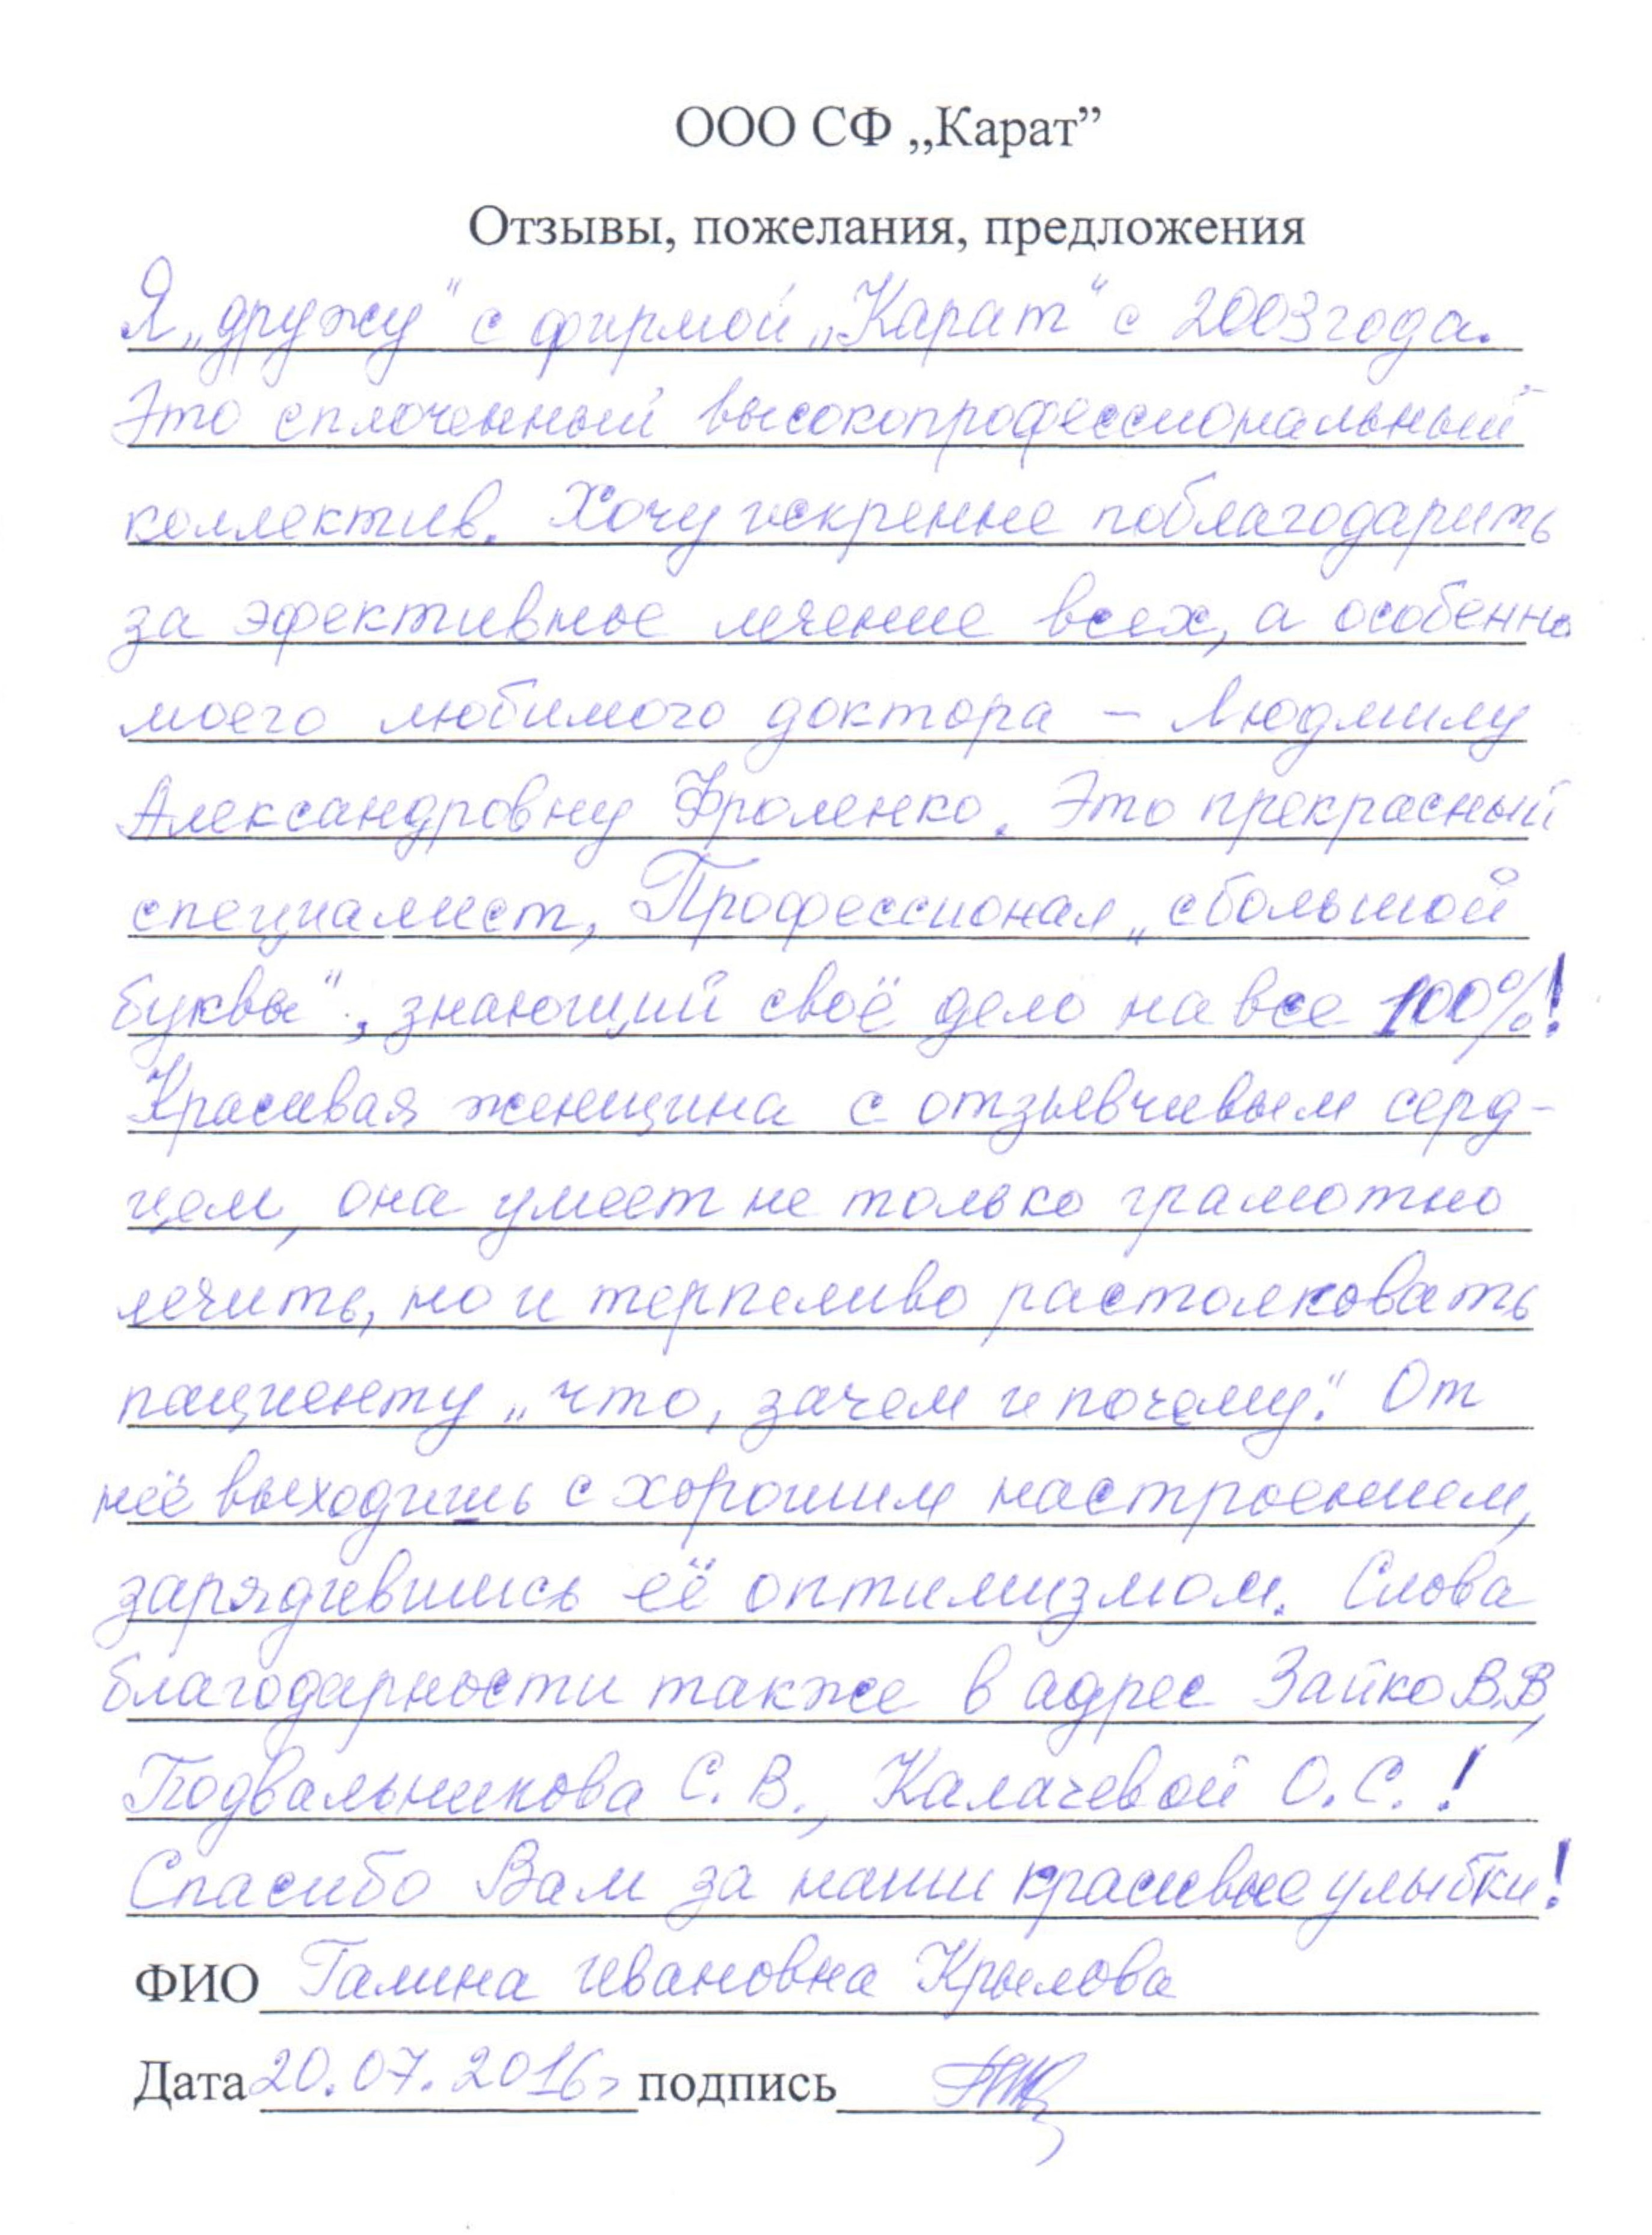 ООО СФ „Карат”
Отзывы, пожелания, предложения
Я „дружу“ с фирмой „Карат“ с 2003 года.
Это сплоченный высокопрофессиональный
коллектив. Хочу искренне поблагодарить
за эфективное лечение всех, а особенно
моего любимого доктора – Людмилу
Александровну Фроленко. Это прекрасный
специалист, Профессионал „с большой
буквы“, знающий своё дело на все 100%!
Красивая женщина с отзывчивым серд-
цем, она умеет не только грамотно
лечить, но и терпеливо растолковать
пациенту „что, зачем и почему.“ От
неё выходишь с хорошим настроением,
зарядившись её оптимизмом. Слова
благодарности также в адрес Зайко В.В,
Подвальникова С. В., Калачевой О. С. !
Спасибо Вам за наши красивые улыбки!
ФИО Галина Ивановна Крылова
Дата 20.07.2016г подпись